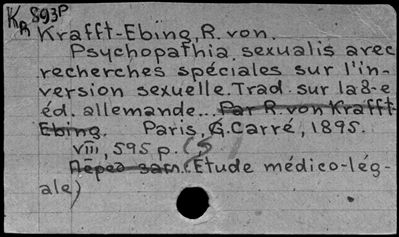 KR 893P
Krafft-Ebing, R. von.
Psychopathia sexualis avec
recherches spéciales sur l'in-
version sexuelle. Trad. sur la 8-e
éd. allemande... Par R. von Krafft-
Ebing. Paris, G. Carré, 1895.
VIII, 595 p. (
Перед загл.: Etude médico-lég-
ale)